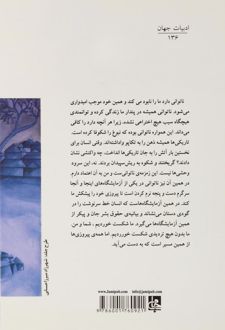 ادبیات جهان
۱۳۶
ناتوانی دارد ما را نابود می کند و همین خود موجب امیدواری
می‌شود. ناتوانی همیشه در پندار ما زندگی کرده و توانمندی
هیچ‌گاه سبب هیچ اختراعی نشده، زیرا هر آنچه دارد را کافی
می‌داند. این همواره ناتوانی بوده که نبوغ را شکوفا کرده است.
تاریکی‌ها همیشه ذهن را به تکاپو واداشته‌اند. وقتی انسان برای
نخستین بار آتش را به جان تاریکی‌ها انداخت، چه واکنشی نشان
دادند؟ گریختند و شکوه به ریش‌سپیدان بردند. نه، این سرود
وحشی‌ها نیست. این زمزمه‌ی ناتوانی‌ست و من به آن اعتماد دارم.
در همین آن نیز ناتوانی در یکی از آزمایشگاه‌های اینجا و آنجا
سرگرم دست و پنجه نرم کردن است تا پیروزی خود را پیشکش ما
کند. در همین آزمایشگاه‌هاست که انسان خط سرنوشت را در
گودی دستان می‌نشاند و بیانیه‌ی حقوق بشر جان و پیکر از
آزمایشگاه‌ها می‌گیرد. ما شکست خوردیم، شما و من
ما بدون هیچ تردیدی شکست خوردیم. اما همه‌ی پیروزی‌ها
از همین مسیر است که به دست می‌آید.
www.Jamipub.com
info@jamipub.com
9786001760921